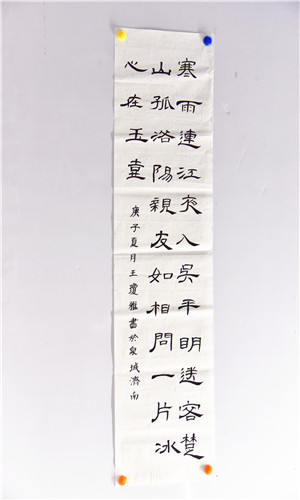 寒雨連江夜入吳平明送客楚
山孤洛陽親友如相問一片冰
心在玉壺
庚子夏月王瓊雅書於泉城濟南